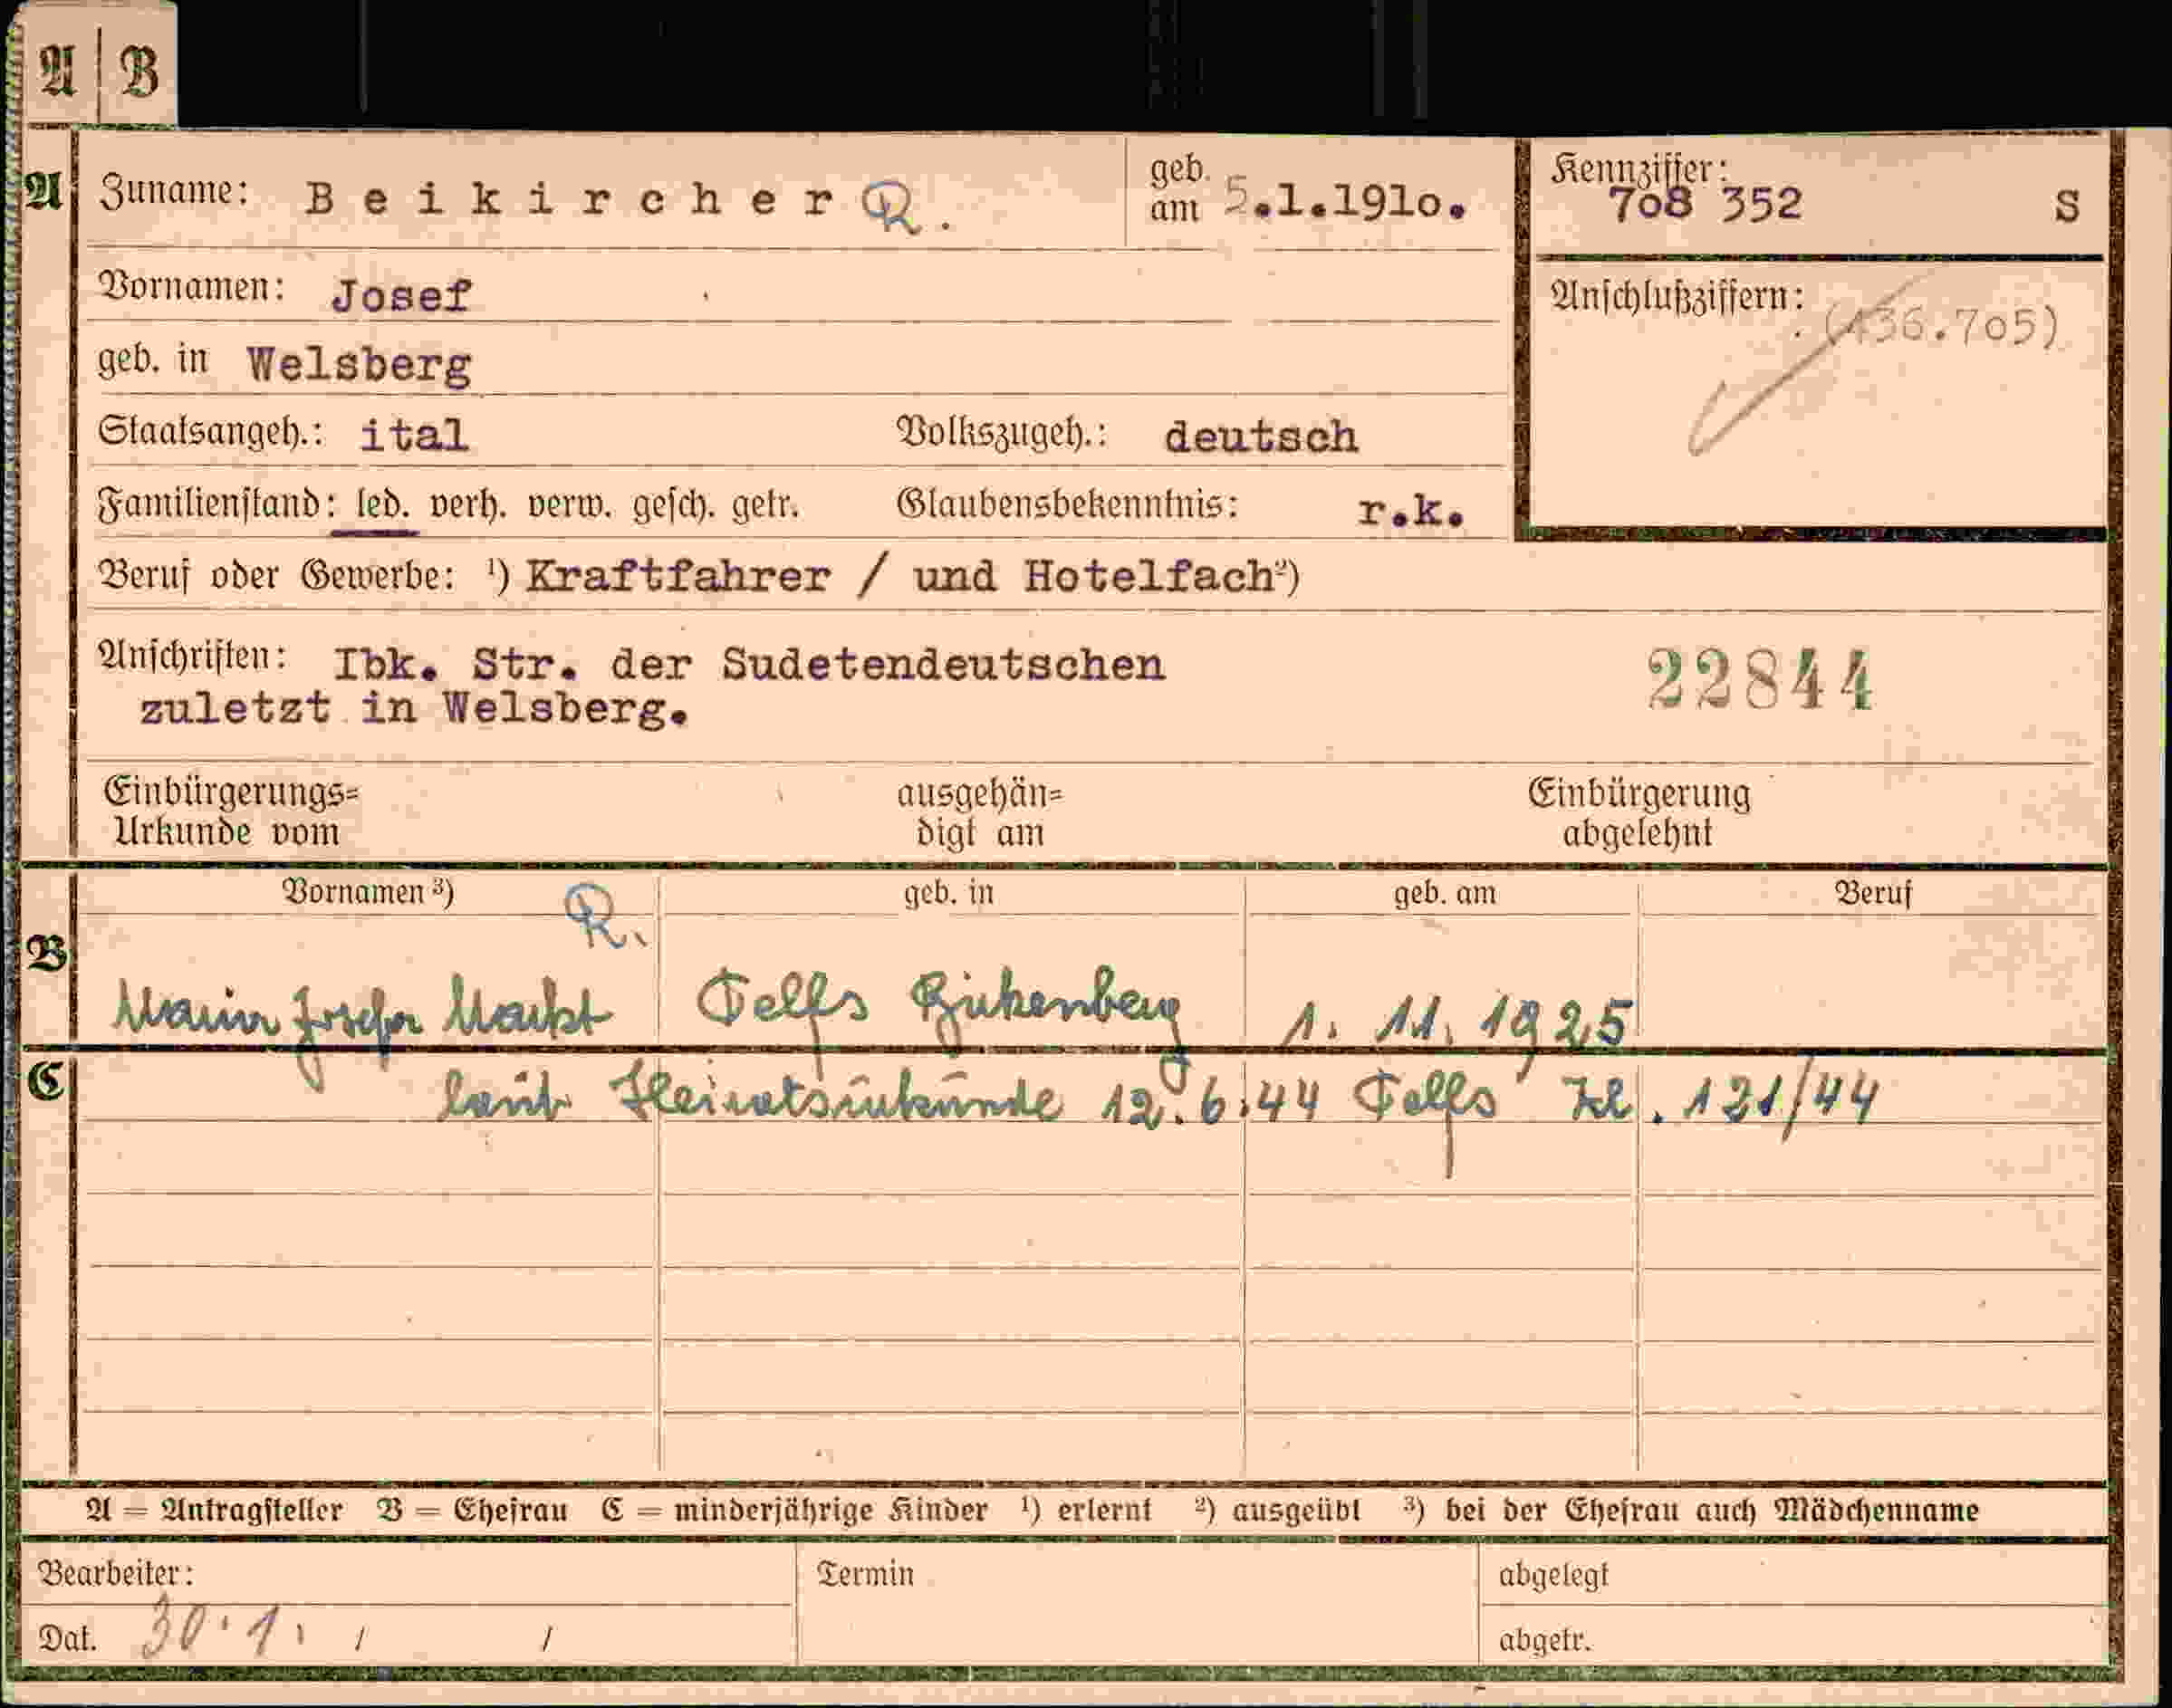 A | B
A Zuname: Beikircher R. geb. am 5.1.1910. Kennziffer: 708 352 S
Vornamen: Josef Anschlußziffern: (136.705)
geb. in Welsberg
Staatsangeh.: ital Volkszugeh.: deutsch
Familienstand: led. verh. verw. gesch. getr. Glaubensbekenntnis: r.k.
Beruf oder Gewerbe: ¹) Kraftfahrer / und Hotelfach²)
Anschriften: Ibk. Str. der Sudetendeutschen 22844
zuletzt in Welsberg.
Einbürgerungs= ausgehän= Einbürgerung
Urkunde vom digt am abgelehnt
Vornamen ³) R. geb. in geb. am Beruf
B Maria Josefa Markt Telfs Birkenberg 1. 11. 1925
C laut Heiratsurkunde 12.6.44 Telfs Zl. 121/44
A = Antragsteller B = Ehefrau C = minderjährige Kinder ¹) erlernt ²) ausgeübt ³) bei der Ehefrau auch Mädchenname
Bearbeiter: Termin abgelegt
Dat. 30.1. / / abgetr.